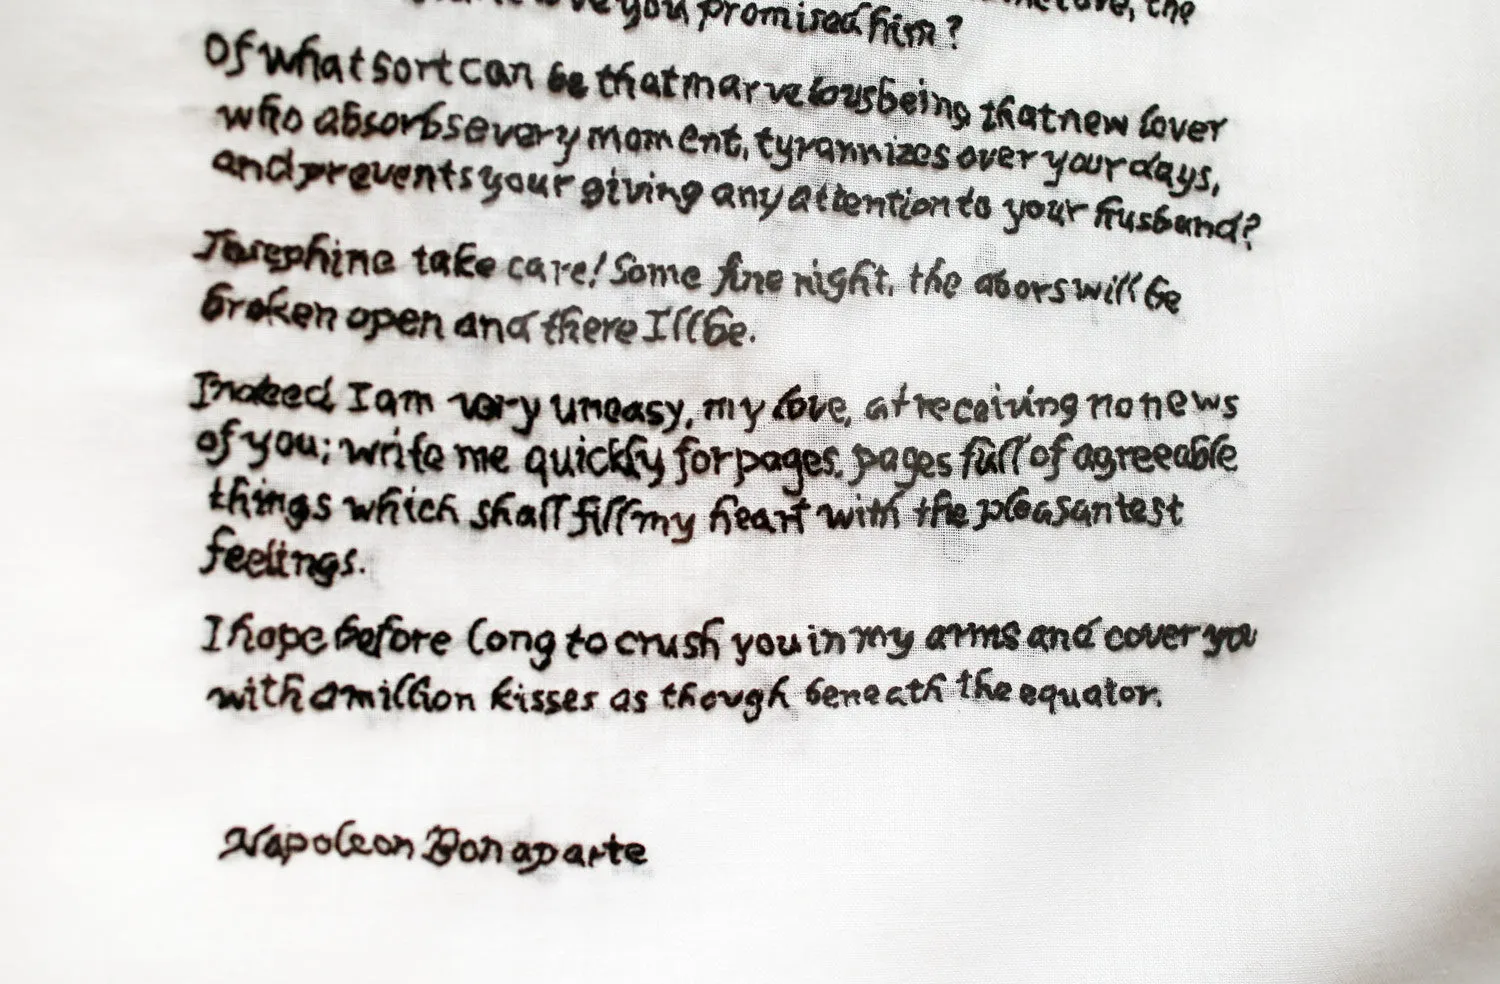 love you promised him?
Of what sort can be that marvelous being, that new lover
who absorbs every moment, tyrannizes over your days,
and prevents your giving any attention to your husband?
Josephine take care! Some fine night, the doors will be
broken open and there I'll be.
Indeed I am very uneasy, my love, at receiving no news
of you; write me quickly for pages, pages full of agreeable
things which shall fill my heart with the pleasantest
feelings.
I hope before long to crush you in my arms and cover you
with a million kisses as though beneath the equator.
Napoleon Bonaparte